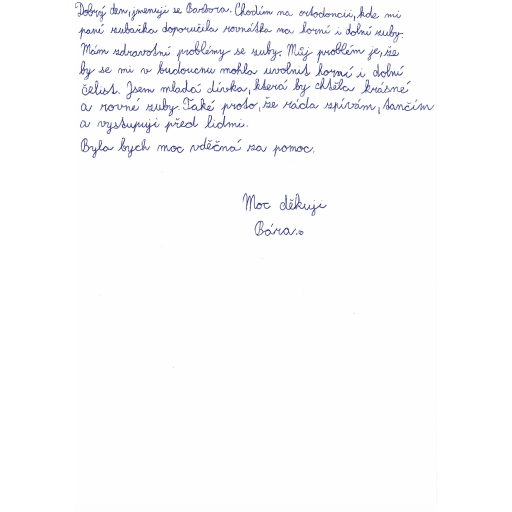 Dobrý den, jmenuji se Barbora. Chodím na ortodoncii, kde mi
paní zubařka doporučila rovnátka na horní i dolní zuby.
Mám zdravotní problémy se zuby. Můj problém je, že
by se mi v budoucnu mohla uvolnit horní i dolní
čelist. Jsem mladá dívka, která by chtěla krásné
a rovné zuby. Také proto, že ráda zpívám, tančím
a vystupuji před lidmi.
Byla bych moc vděčná za pomoc.
Moc děkuji
Bára.